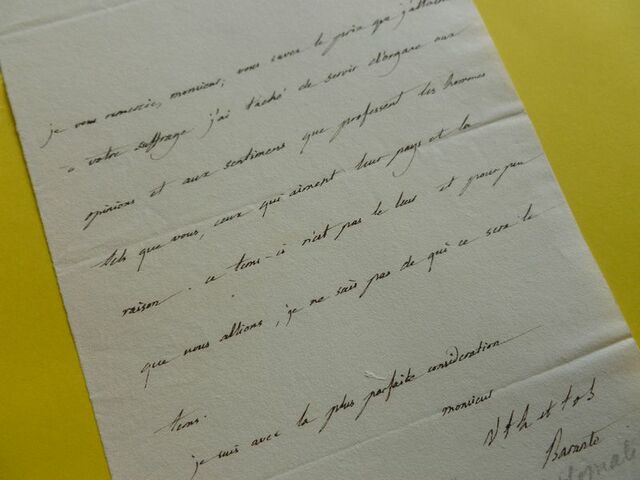 je vous remercie, monsieur, vous savez le prix que j'attache
a votre suffrage j'ai taché de servir d'organe aux
opinions et aux sentimens que professent les hommes
tels que vous, ceux qui aiment leur pays et la
raison. ce tems-ci n'est pas le leur et pour peu
que nous allions, je ne sais pas de qui ce sera le
tems.
je suis avec la plus parfaite consideration
monsieur
v t h et t o s
Barante